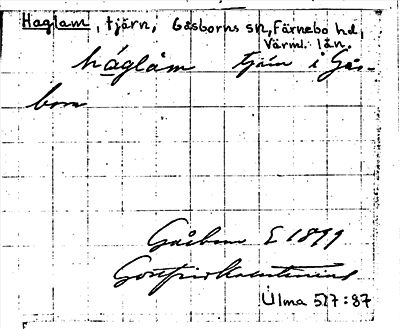 Haglam, tjärn, Gåsborns sn, Färnebo hd,
Värml. län.
håglåm tjärn i Gås-
born
Gåsborn E 1899
Gottfrid Kallstenius
Ulma 517:87